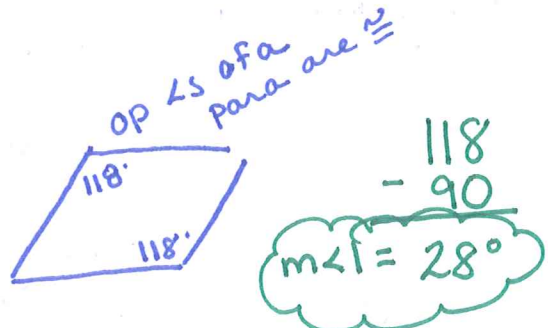 op ∠s of a
para are ≅
118°
118°
118
- 90
m<1 = 28°